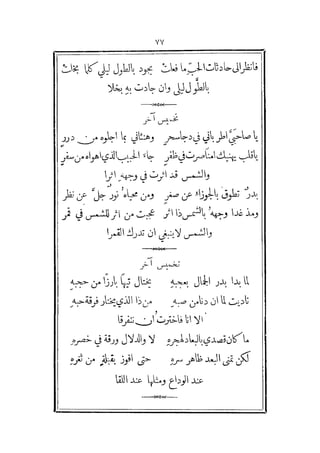 ٧٧
فانظر الى حادثات الحب ما فعلت بجود بالطول ليلي كلما بخلت
بالطول ليلى وان جادت به بخلا
تخميس آخر
يا صاحبيَّ اطرباني في دجا سحر وهنئاني بما اجلوه من درر
ياقلب يهنيك امنًا صرت في ظفر جاء الحبيب الذي اهواه من سفر
والشمس قد اثرت في وجهه اثرا
بدرٌ تطوق بالجوزاء عن صغر ومن محياه نور جلَّ عن نظر
ومذ غدا وجهه بالشمس ذا اثر عجبت من اثر للشمس في قمر
والشمس لا ينبغي ان تدرك القمرا
تخميس آخر
لما بدا بدر الجمال بعجبه يختال تيهًا بارزًا من حجبه
ناديت لما ان دنا من صبه من ذا الذي يختار فرقة حبه
الا انا فاخترت ان نتفرقا
ما كان قصدي بالبعاد لهجره لا والدلال ورقة في خصره
لكن تمنى البعد ظاهر سره حتى افوز بقبلة من ثغره
عند الوداع ومثلها عند اللقا